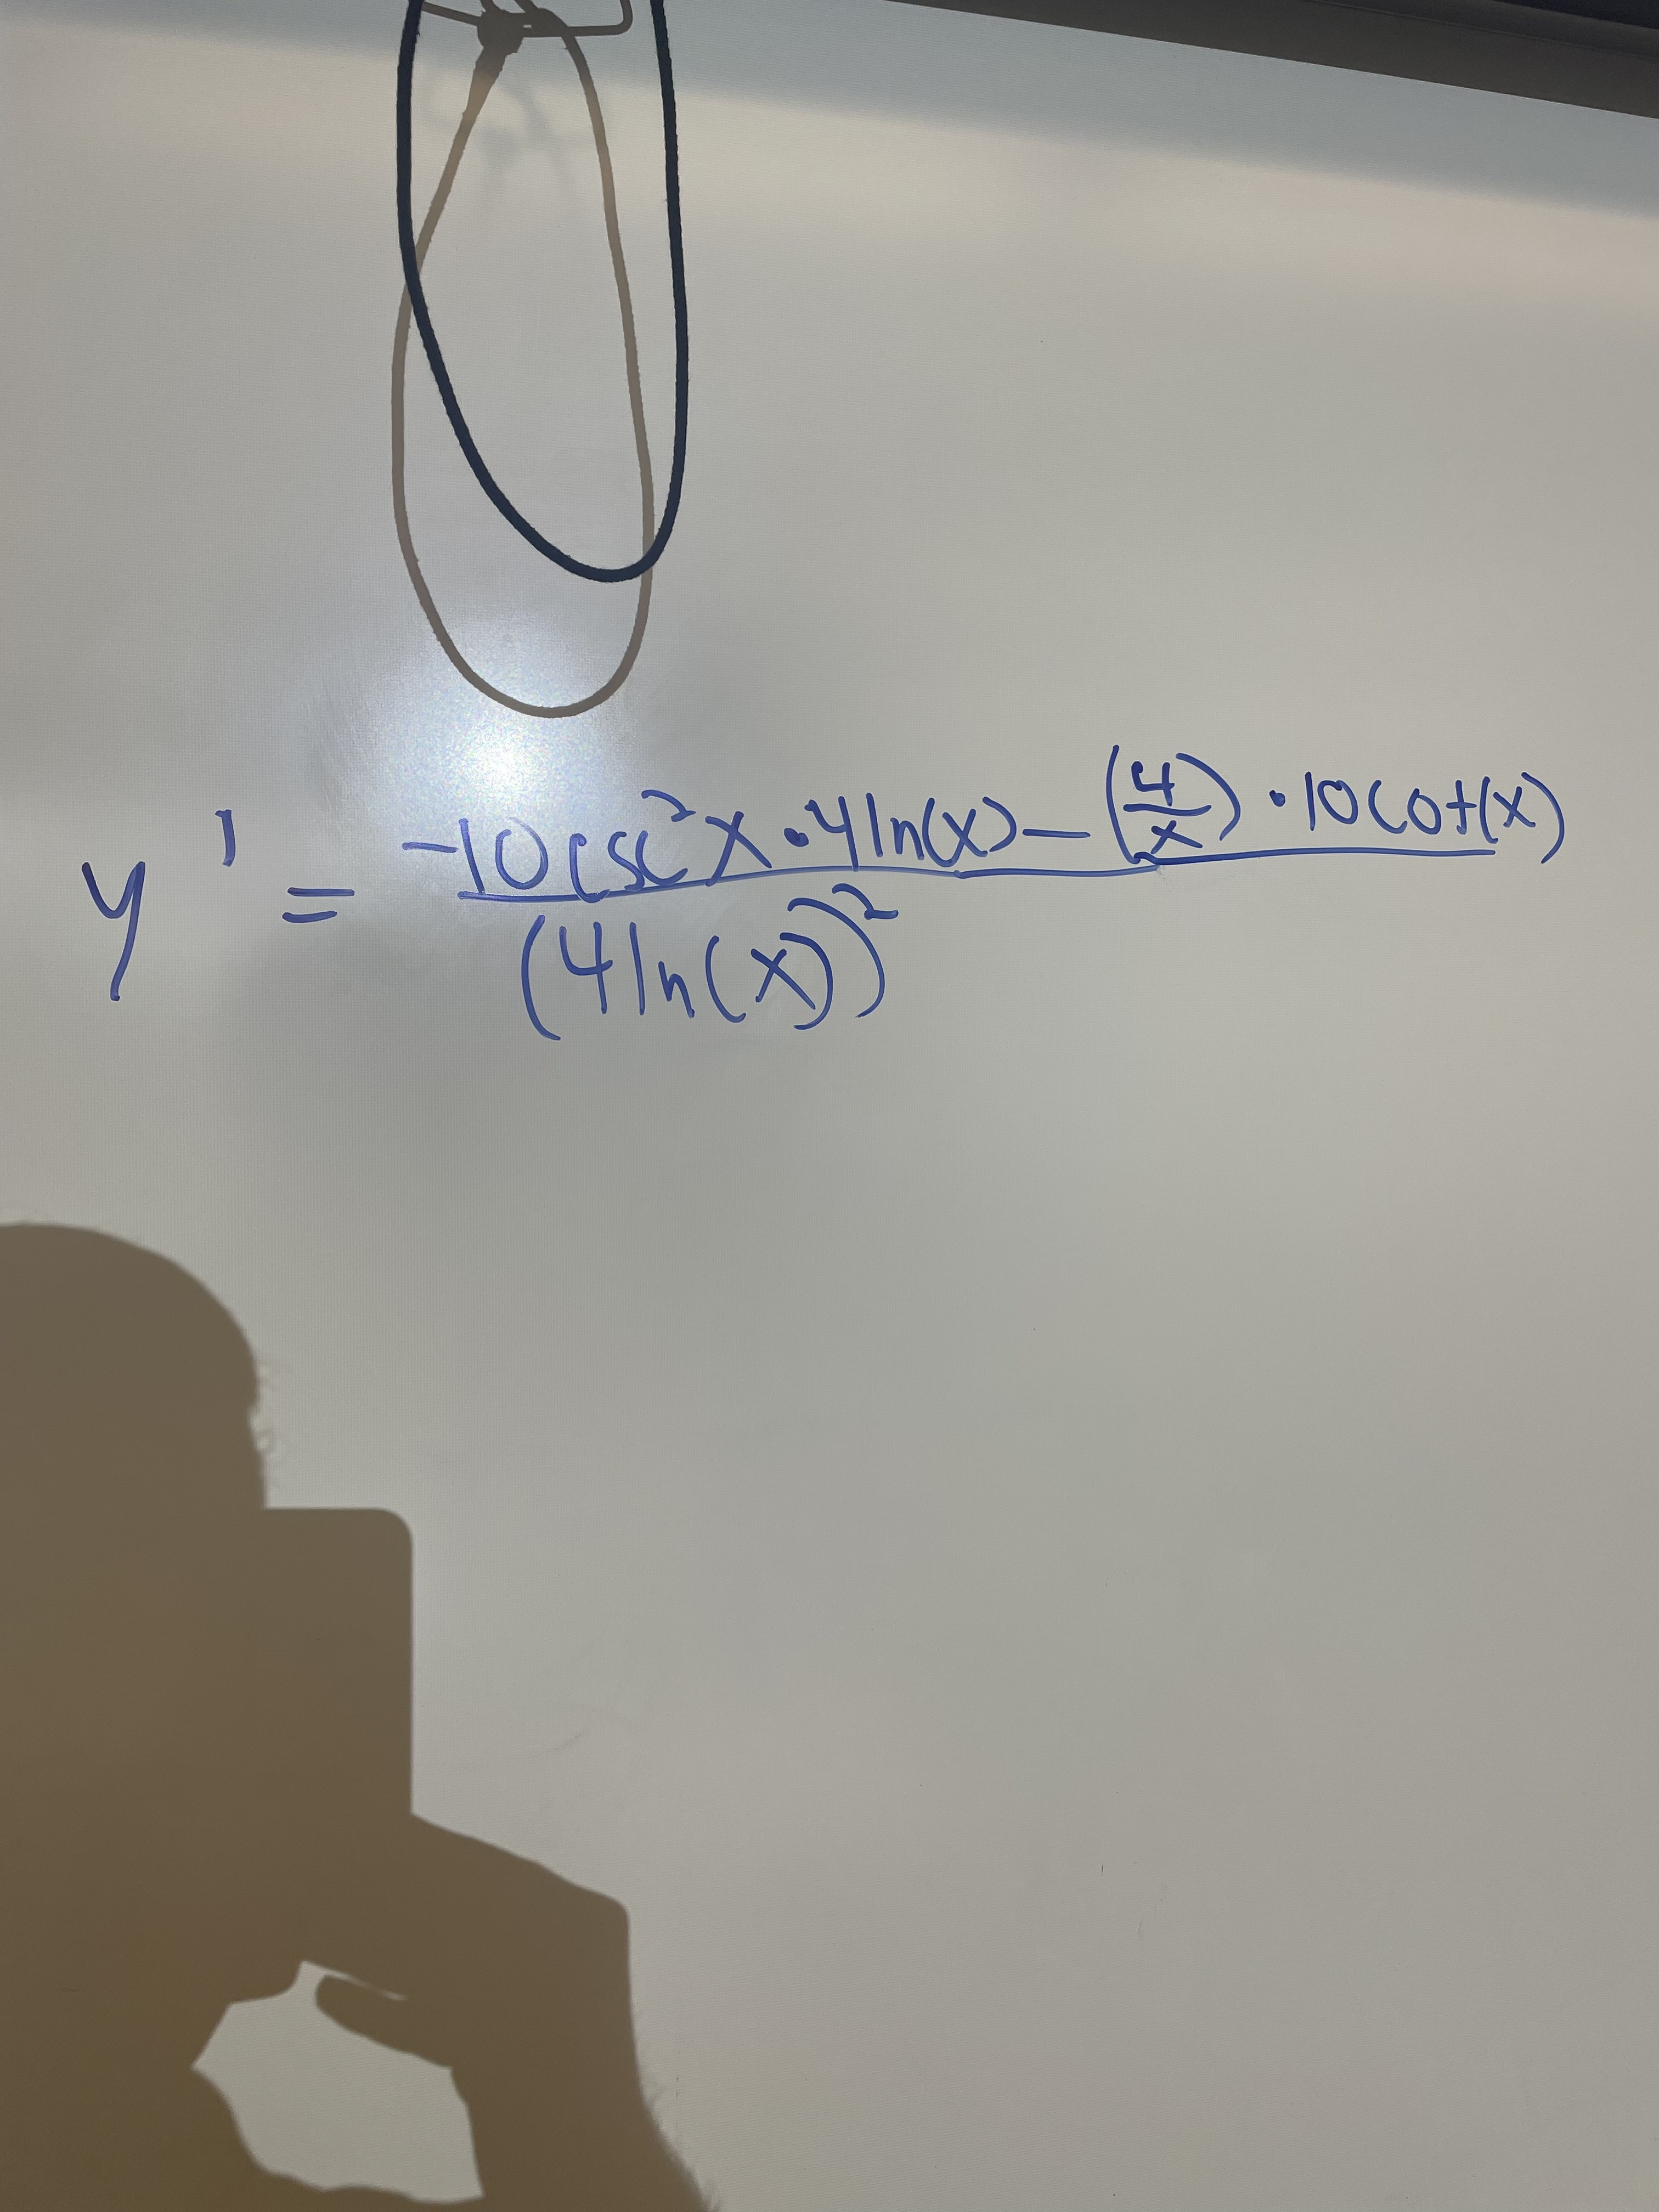 y' = -10csc²x•4ln(x)—(4/x)•10cot(x)
(4ln(x))²